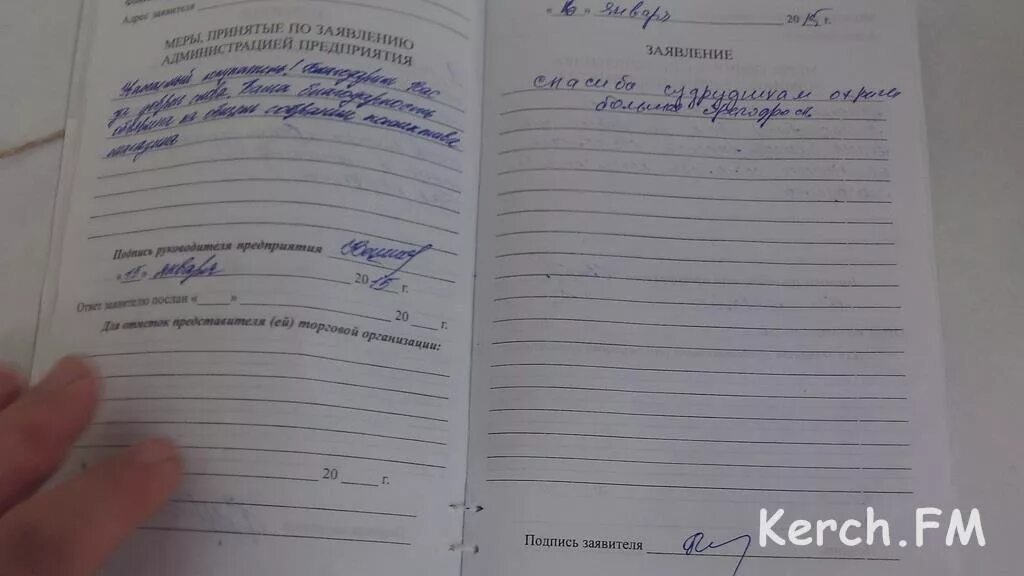 Адрес заявителя
МЕРЫ, ПРИНЯТЫЕ ПО ЗАЯВЛЕНИЮ
АДМИНИСТРАЦИЕЙ ПРЕДПРИЯТИЯ
Уважаемый покупатель! Благодарим Вас
за добрые слова. Ваша благодарность
объявлена на общем собрании коллектива
магазина
Подпись руководителя предприятия
"18" января 2015 г.
Ответ заявителю послан «____» 20 ____ г.
Для отметок представителя (ей) торговой организации:
20 ____ г.
"16" января 2015 г.
ЗАЯВЛЕНИЕ
спасиба судрудникам охрани
большая
Подпись заявителя
Kerch.FM